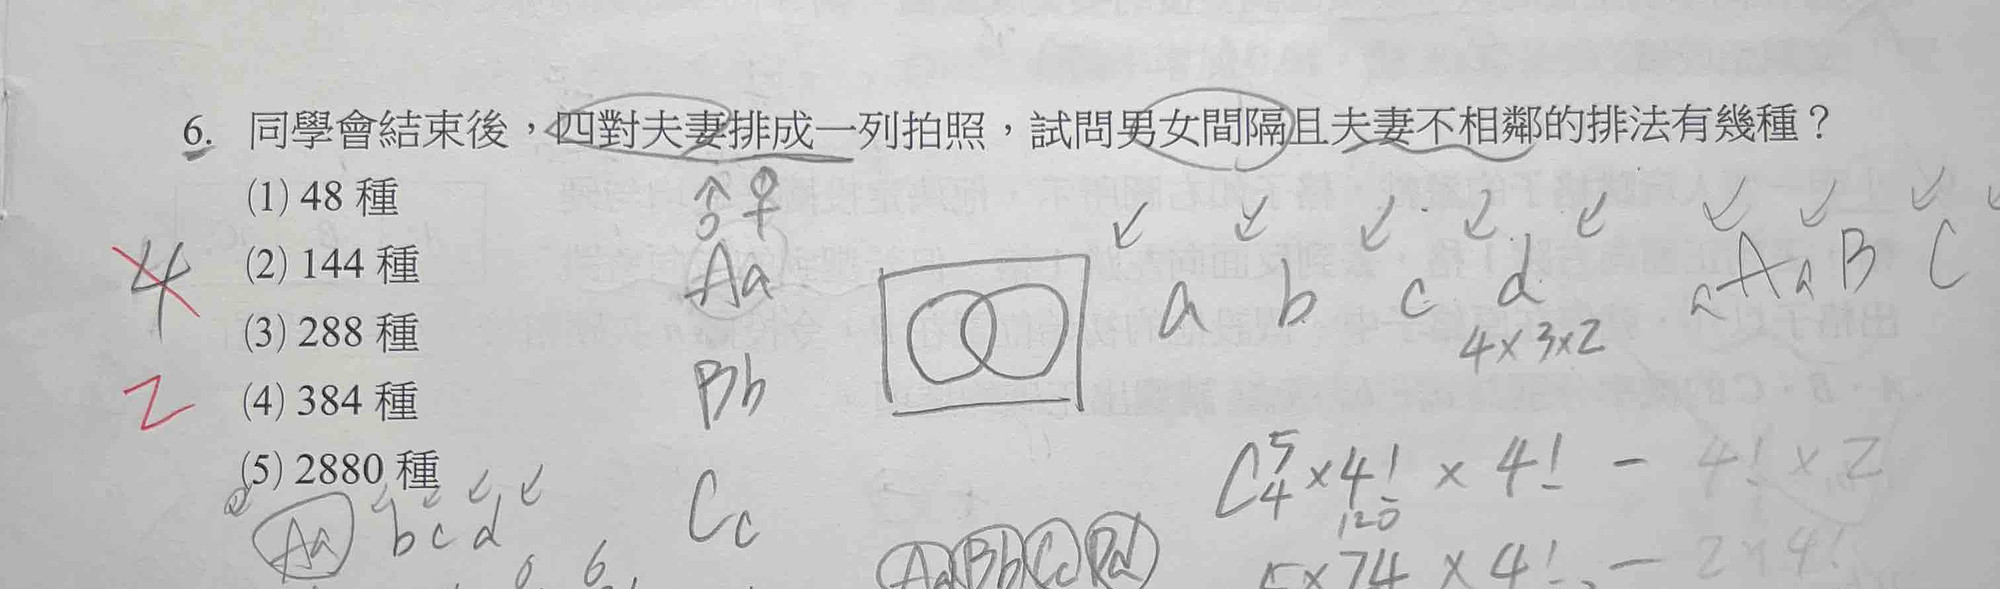 6. 同學會結束後，四對夫妻排成一列拍照，試問男女間隔且夫妻不相鄰的排法有幾種？
(1) 48 種
(2) 144 種
(3) 288 種
(4) 384 種
(5) 2880 種
4
2
♂♀
Aa
Bb
Cc
a b c d
4×3×2
a A a B C
C⁵₄×4!×4! − 4!×2
120
5×24×4! − 2×4!
Aa b c d
Aa Bb Cc Dd
6 6